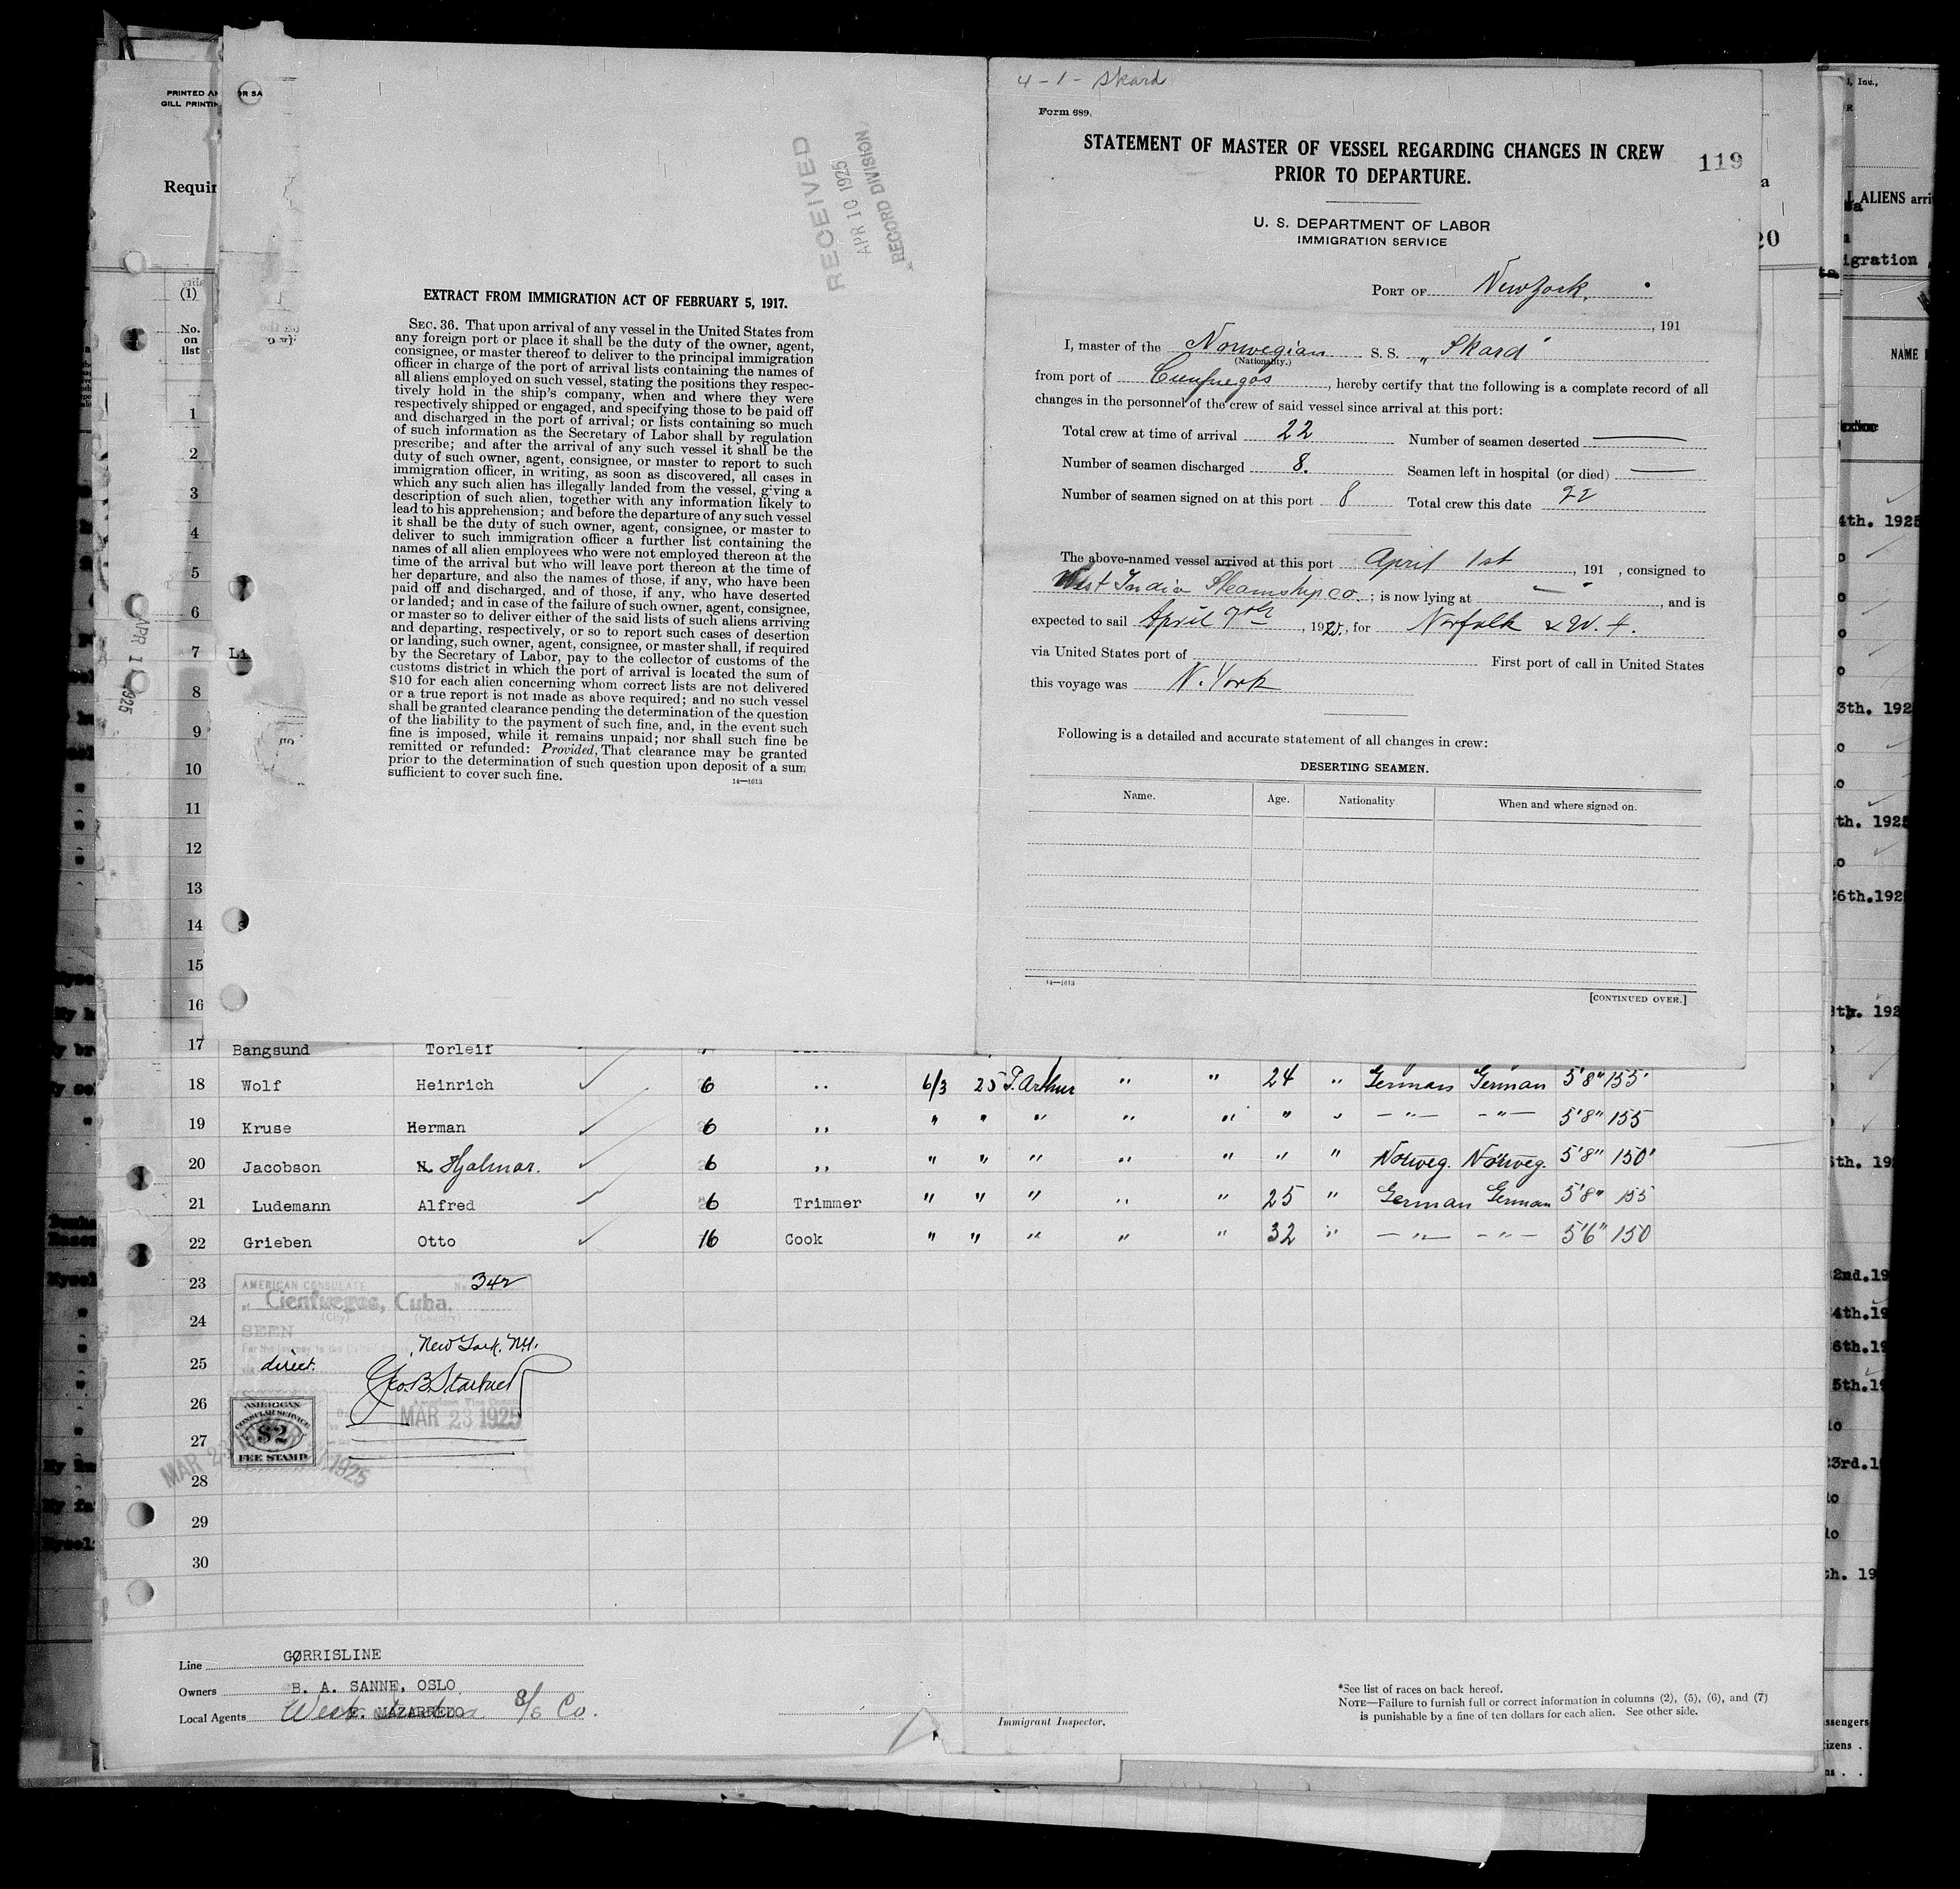 4 - 1 - Skard
Form 689.
STATEMENT OF MASTER OF VESSEL REGARDING CHANGES IN CREW
PRIOR TO DEPARTURE.
119
U. S. DEPARTMENT OF LABOR
IMMIGRATION SERVICE
PORT OF New York.
, 191
I, master of the Norwegian S. S. „Skard"
(Nationality.)
from port of Cienfuegos, hereby certify that the following is a complete record of all
changes in the personnel of the crew of said vessel since arrival at this port:
Total crew at time of arrival 22 Number of seamen deserted —
Number of seamen discharged 8. Seamen left in hospital (or died) —
Number of seamen signed on at this port 8 Total crew this date 22
The above-named vessel arrived at this port April 1st, 191 , consigned to
West India Steamship Co.; is now lying at — " , and is
expected to sail April 7th, 1925, for Norfolk & W. I.
via United States port of First port of call in United States
this voyage was N. York
Following is a detailed and accurate statement of all changes in crew:
DESERTING SEAMEN.
Name. Age. Nationality When and where signed on.
14—1613
[CONTINUED OVER.]
RECEIVED
APR 10 1925
RECORD DIVISION
EXTRACT FROM IMMIGRATION ACT OF FEBRUARY 5, 1917.
SEC. 36. That upon arrival of any vessel in the United States from
any foreign port or place it shall be the duty of the owner, agent,
consignee, or master thereof to deliver to the principal immigration
officer in charge of the port of arrival lists containing the names of
all aliens employed on such vessel, stating the positions they respec-
tively hold in the ship's company, when and where they were
respectively shipped or engaged, and specifying those to be paid off
and discharged in the port of arrival; or lists containing so much
of such information as the Secretary of Labor shall by regulation
prescribe; and after the arrival of any such vessel it shall be the
duty of such owner, agent, consignee, or master to report to such
immigration officer, in writing, as soon as discovered, all cases in
which any such alien has illegally landed from the vessel, giving a
description of such alien, together with any information likely to
lead to his apprehension; and before the departure of any such vessel
it shall be the duty of such owner, agent, consignee, or master to
deliver to such immigration officer a further list containing the
names of all alien employees who were not employed thereon at the
time of the arrival but who will leave port thereon at the time of
her departure, and also the names of those, if any, who have been
paid off and discharged, and of those, if any, who have deserted
or landed; and in case of the failure of such owner, agent, consignee,
or master so to deliver either of the said lists of such aliens arriving
and departing, respectively, or so to report such cases of desertion
or landing, such owner, agent, consignee, or master shall, if required
by the Secretary of Labor, pay to the collector of customs of the
customs district in which the port of arrival is located the sum of
$10 for each alien concerning whom correct lists are not delivered
or a true report is not made as above required; and no such vessel
shall be granted clearance pending the determination of the question
of the liability to the payment of such fine, and, in the event such
fine is imposed, while it remains unpaid; nor shall such fine be
remitted or refunded: Provided, That clearance may be granted
prior to the determination of such question upon deposit of a sum
sufficient to cover such fine.
14—1613
(1)
No.
on
list
1
2
3
4
5
6
7
8
9
10
11
12
13
14
15
16
17 Bangsund Torleif
18 Wolf Heinrich 6 " 6/3 25 P. Arthur " " 24 " German German 5'8" 155
19 Kruse Herman 6 " " " " " " " " — " — — " — 5'8" 155
20 Jacobson H. Hjalmar. 6 " " " " " " " " Norweg. Norweg. 5'8" 150
21 Ludemann Alfred 6 Trimmer " " " " " 25 " German German 5'8" 155
22 Grieben Otto 16 Cook " " " " " 32 " — " — — " — 5'6" 150
23
24
25
26
27
28
29
30
AMERICAN CONSULATE No. 342
at Cienfuegos, Cuba.
(City) (Country)
SEEN
New York, N.Y.
direct.
MAR 23 1925
AMERICAN
CONSULAR SERVICE
$2
FEE STAMP
Line GØRRISLINE
Owners B. A. SANNE, OSLO
Local Agents E. MAZARREDO West India S/S Co.
Immigrant Inspector.
*See list of races on back hereof.
NOTE—Failure to furnish full or correct information in columns (2), (5), (6), and (7)
is punishable by a fine of ten dollars for each alien. See other side.